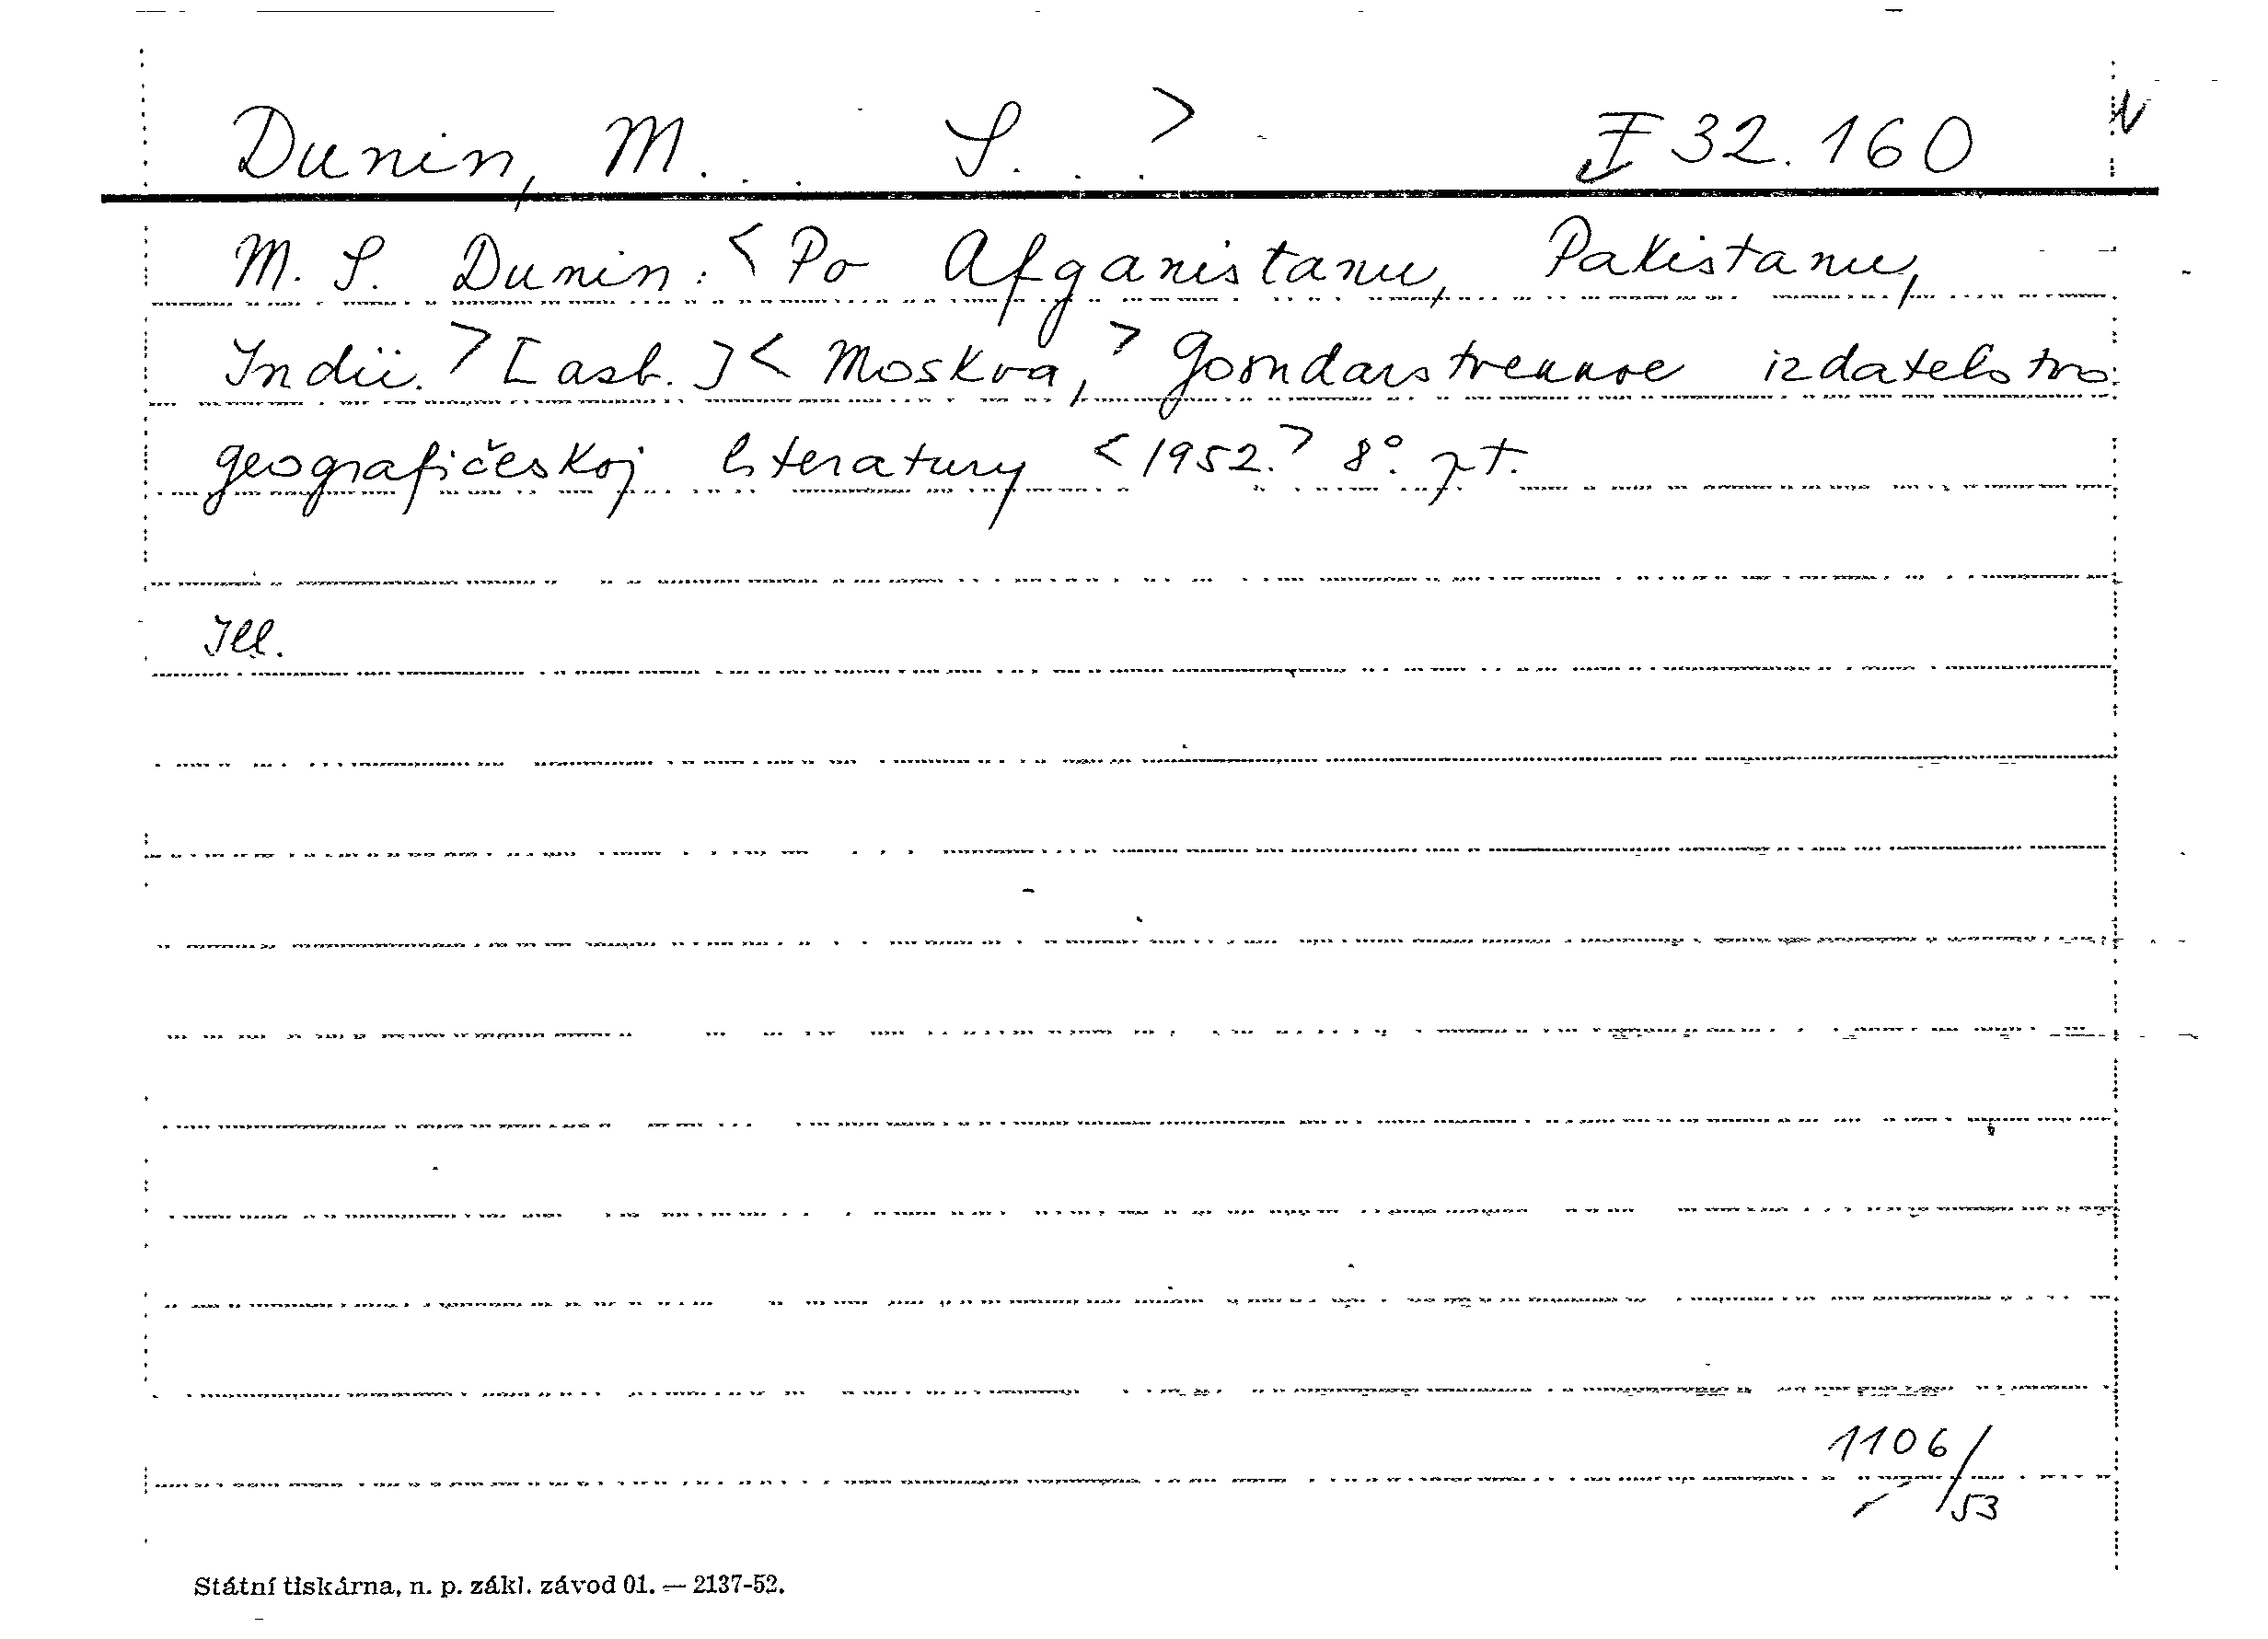 Dunin, M. . . S. . . > I 32.160 N
M. S. Dunin: <Po Afganistanu, Pakistanu,
Indii.> [azb.] < Moskva, > Gosudarstvennoe izdatelstvo
geografičeskoj literatury <1952.> 8°. pt.
Ill.
1106/
53
Státní tiskárna, n. p. zákl. závod 01. — 2137-52.